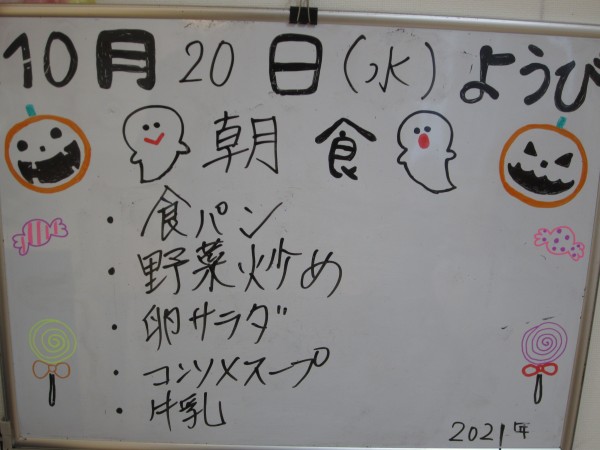 10月20日(水)ようび
朝食
・食パン
・野菜炒め
・卵サラダ
・コンソメスープ
・牛乳
2021年